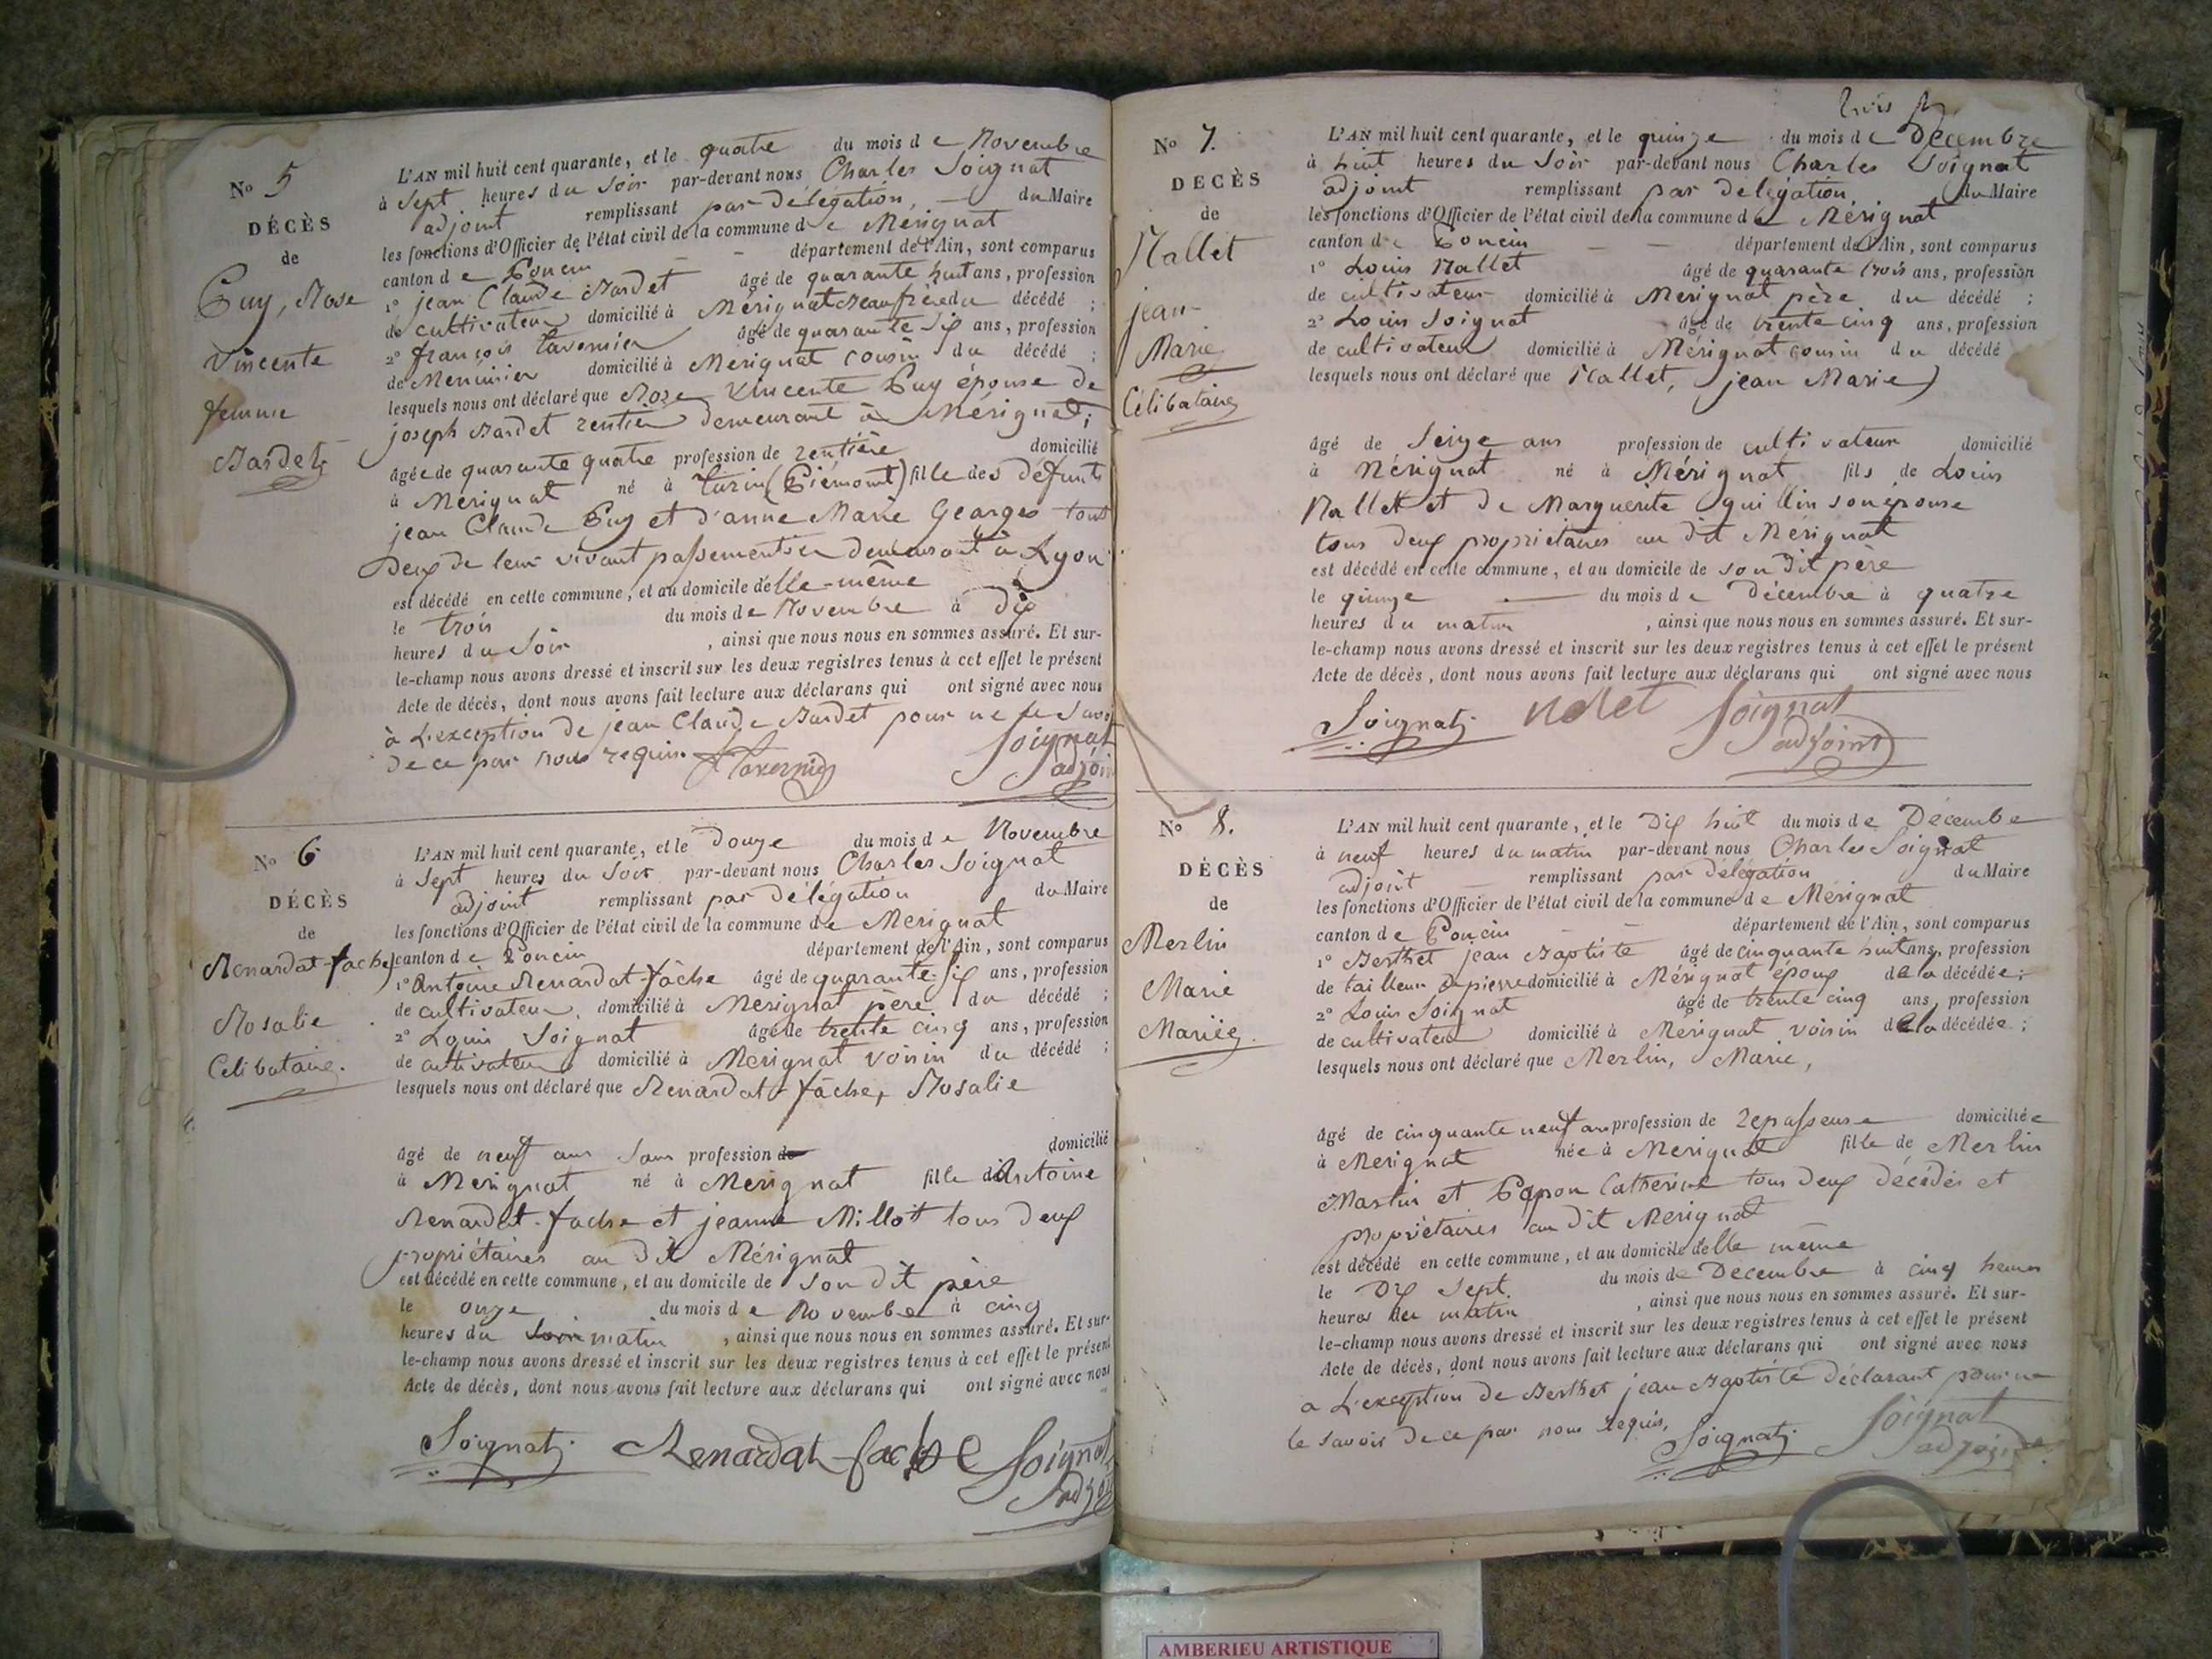 No 5
DÉCÈS
de
Puy, Rose
Vincente
femme
Bardet
L'AN mil huit cent quarante, et le quatre du mois de Novembre
à Sept heures du Soir par-devant nous Charles Soignat
adjoint remplissant par délégation, du Maire
les fonctions d'Officier de l'état civil de la commune de Mérignat
canton de Poncin département de l'Ain, sont comparus
1° jean Claude Bardet âgé de quarante huit ans, profession
de cultivateur domicilié à Mérignat Beaufrère du décédé ;
2° françois tavernier âgé de quarante Six ans, profession
de Menuisier domicilié à Merignat cousin du décédé ;
lesquels nous ont déclaré que Rose Vincente Puy épouse de
joseph Bardet rentier demeurant à Mérignat;
âgée de quarante quatre profession de rentière domicilié
à Mérignat né à turin (Piémont) fille des défunts
jean Claude Puy et d'anne Marie Georges tout
Deux de leur vivant passementier demeurant à Lyon
est décédé en cette commune, et au domicile d'elle-même
le trois du mois de Novembre à Dix
heures du Soir , ainsi que nous nous en sommes assuré. Et sur-
le-champ nous avons dressé et inscrit sur les deux registres tenus à cet effet le présent
Acte de décès, dont nous avons fait lecture aux déclarans qui ont signé avec nous
à L'exception de jean Claude Bardet pour ne le Savoir
de ce par nous requis. Tavernier Soignat
adjoin
No 6
DÉCÈS
de
Renardat-fache
Rosalie
Célibataire.
L'AN mil huit cent quarante, et le Douze du mois de Novembre
à Sept heures du Soir par-devant nous Charles Soignat
adjoint remplissant par délégation du Maire
les fonctions d'Officier de l'état civil de la commune de Merignat
canton de Poncin département de l'Ain, sont comparus
1° Antoine Renardat-fâche âgé de quarante-Six ans, profession
de cultivateur, domicilié à Merignat père du décédé ;
2° Louis Soignat âgé de trente cinq ans, profession
de cultivateur domicilié à Merignat voisin du décédé ;
lesquels nous ont déclaré que Renardat-fâche, Rosalie
âgé de neuf ans Sans profession de domicilié
à Merignat né à Merignat fille d'Antoine
Renardat-fache et jeanne Millot tous deux
propriétaires au dit Mérignat
est décédé en cette commune, et au domicile de Son dit père
le onze du mois de Novembre à cinq
heures du Soir matin , ainsi que nous nous en sommes assuré. Et sur-
le-champ nous avons dressé et inscrit sur les deux registres tenus à cet effet le présent
Acte de décès, dont nous avons fait lecture aux déclarans qui ont signé avec nous
Soignat Renardat-fache Soignat
adjoin
No 7.
DECÈS
de
Nallet
jean-
Marie
Célibataire
L'AN mil huit cent quarante, et le quinze du mois de Décembre
à huit heures du Soir par-devant nous Charles Soignat
adjoint remplissant par delégation du Maire
les fonctions d'Officier de l'état civil de la commune de Mérignat
canton de Poncin département de l'Ain, sont comparus
1° Louis Nallet âgé de quarante trois ans, profession
de cultivateur domicilié à Merignat père du décédé ;
2° Louis Soignat âgé de trente cinq ans, profession
de cultivateur domicilié à Mérignat cousin du décédé
lesquels nous ont déclaré que Nallet, jean Marie
âgé de Seize ans profession de cultivateur domicilié
à Nérignat né à Mérignat fils de Louis
Nallet et de Marguerite quillin son épouse
tous deux propriétaires au dit Mérignat
est décédé en cette commune, et au domicile de son dit père
le quinze du mois de Décembre à quatre
heures du matin , ainsi que nous nous en sommes assuré. Et sur-
le-champ nous avons dressé et inscrit sur les deux registres tenus à cet effet le présent
Acte de décès, dont nous avons fait lecture aux déclarans qui ont signé avec nous
Soignat Nalet Soignat
adjoint
No 8.
DÉCÈS
de
Merlin
Marie
Mariée
L'AN mil huit cent quarante, et le Dix huit du mois de Décembe
à neuf heures du matin par-devant nous Charles Soignat
adjoint remplissant par délégation du Maire
les fonctions d'Officier de l'état civil de la commune de Mérignat
canton de Poncin département de l'Ain, sont comparus
1° Berthet jean Baptiste âgé de cinquante huit ans, profession
de tailleur de pierre domicilié à Mérignat époux de la décédée ;
2° Louis Soignat âgé de trente cinq ans, profession
de cultivateur domicilié à Merignat voisin de la décédée ;
lesquels nous ont déclaré que Merlin, Marie,
âgé de cinquante neuf an profession de repasseuse domiciliée
à Merignat née à Merignat fille de Merlin
Martin et Papon Catherine tous deux décédés et
propriétaires au dit Merignat
est décédé en cette commune, et au domicile d'elle même
le Dix Sept. du mois de Décembre à cinq heures
heures du matin , ainsi que nous nous en sommes assuré. Et sur-
le-champ nous avons dressé et inscrit sur les deux registres tenus à cet effet le présent
Acte de décès, dont nous avons fait lecture aux déclarans qui ont signé avec nous
a L'exception de Berthet jean Baptiste déclarant pour ne
le savoir de ce par nous requis, Soignat Soignat
adjoint
AMBERIEU ARTISTIQUE